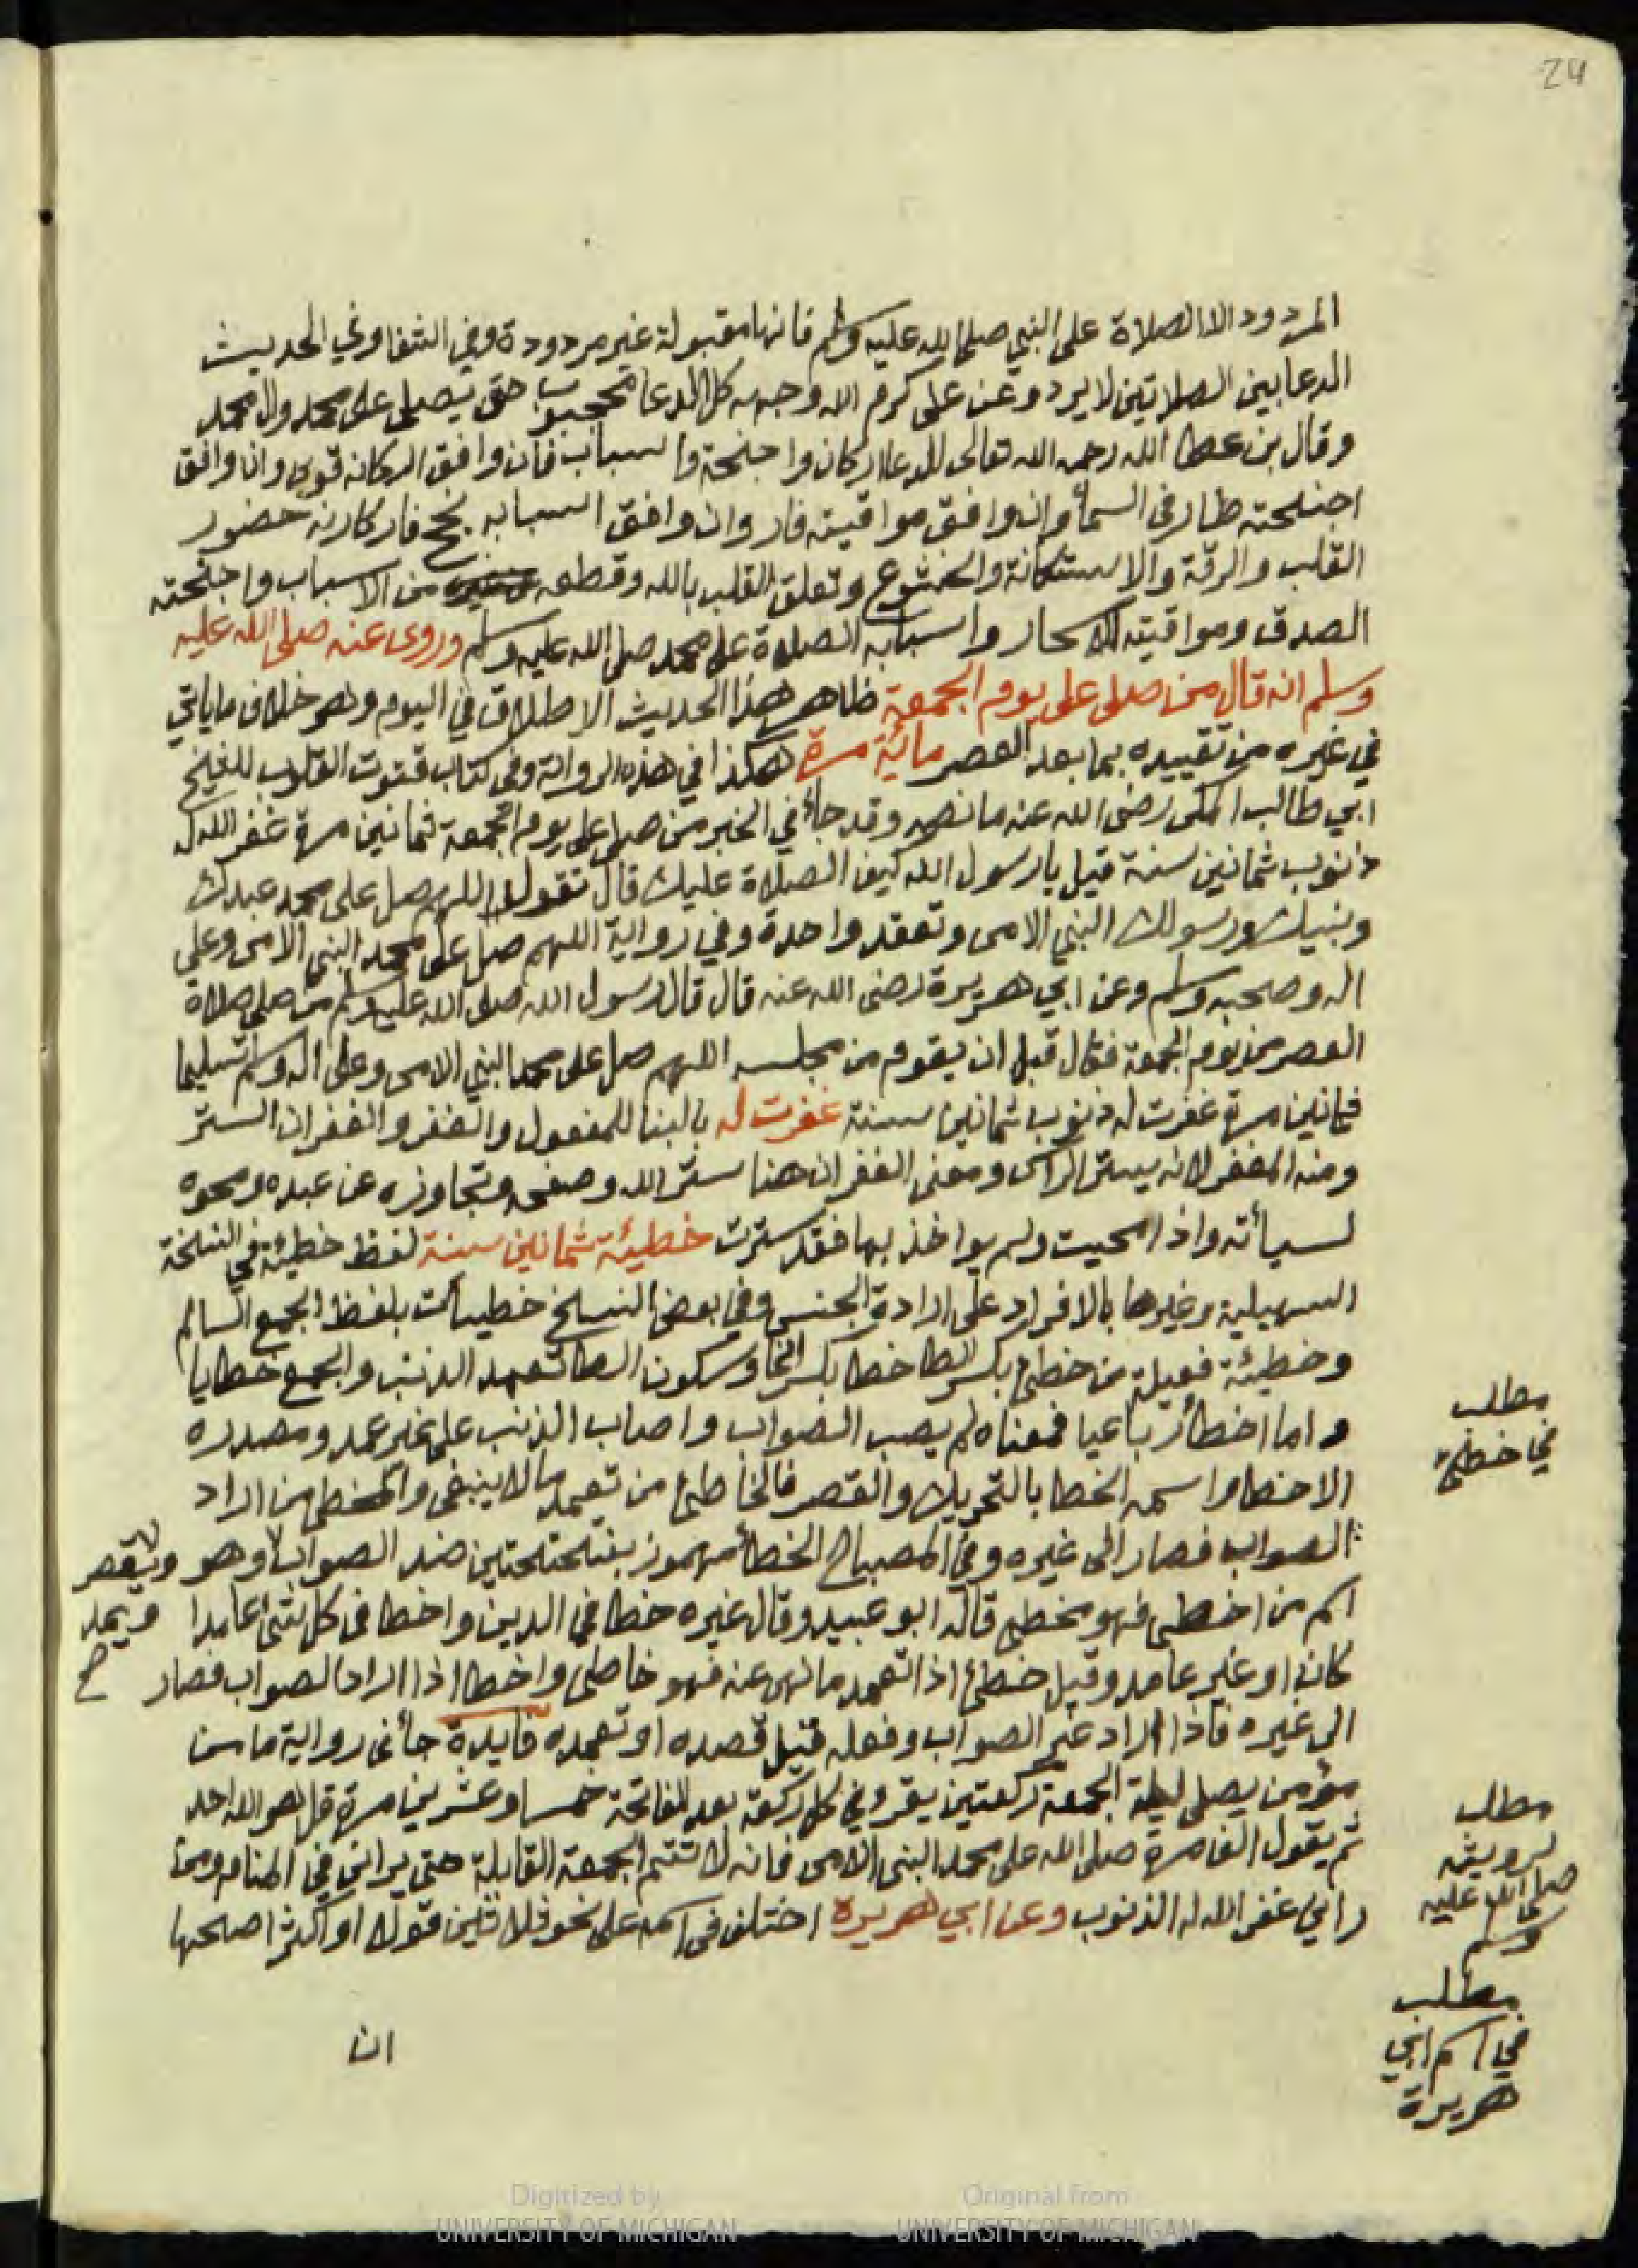 24
المردود الا الصلاة على النبي صلى الله عليه وسلم فانها مقبولة غير مردودة وفي الشفا وفي الحديث
الدعا بين الصلاتين لا يرد وعن على كرم الله وجهه كل الدعا محجوب حتى يصلى على محمد وال محمد
وقال بن عطا الله رحمه الله تعالى للدعا اركان واجنحة واسباب فان وافق اركانه قوى وان وافق
اجنحته طار في السمأ وان وافق مواقيته فاز وان وافق اسبابه نجح فاركانه حضور
القلب والرقة والاستكانة والخشوع وتعلق القلب بالله وقطعه من الاسباب واجنحته
الصدق ومواقيته الاسحار واسبابه الصلاة على محمد صلى الله عليه وسلم وروى عنه صلى الله عليه
وسلم انه قال من صلى على يوم الجمعة ظاهر هذا الحديث الاطلاق في اليوم وهو خلاف ما ياتي
في غيره من تقييده بما بعد العصر مائة مرة هكذا في هذه الرواية وفي كتاب قوت القلوب للشيخ
ابي طالب المكى رضى الله عنه ما نصه وقد جأ في الخبر من صلى على يوم الجمعة ثمانين مرة غفر الله له
ذنوب ثمانين سنة قيل يا رسول الله كيف الصلاة عليك قال تقولوا اللهم صل على محمد عبدك
ونبيك ورسولك النبي الامى وتعقد واحدة وفي رواية اللهم صل على محمد النبي الامى وعلى
اله وصحبه وسلم وعن ابي هريرة رضى الله عنه قال قال رسول الله صلى الله عليه وسلم من صلى صلاة
العصر من يوم الجمعة فقال قبل ان يقوم من مجلسه اللهم صل على محمد النبي الامى وعلى اله وسلم تسليما
ثمانين مرة غفرت له ذنوب ثمانين سنة غفرت له بالبنا للمفعول والغفر والغفران الستر
ومنه المغفر لانه يستر الراس ومعنى الغفران هنا ستر الله وصفحه وتجاوزه عن عبده ومحوه
لسيأته واذا محيت ولم يواخذ بها فقد سترت خطيئة ثمانين سنة لفظ خطيئة في النسخة
السهيلية وغيرها بالافراد على ارادة الجنس وفي بعض النسخ خطيأت بلفظ الجمع السالم
وخطيئة فعيلة من خطئ بكسر الطا خطا بكسر الخا وسكون الطا تعمد الذنب والجمع خطايا
واما اخطأ رباعيا فمعناه لم يصب الصواب واصاب الذنب على غير عمد ومصدره
الاخطا واسمه الخطا بالتحريك والقصر فالخاطئ من تعمد ما لا ينبغى والمخطى من اراد
الصواب فصار الى غيره وفي المصباح الخطأ مهموز بفتحتين ضد الصواب وهو ويقصر
اسم من اخطى فهو مخطى قاله ابو عبيد وقال غيره خطا في الدين واخطا في كل شئ عامدا ويمد
كان او غير عامد وقيل خطئ اذا تعمد ما نهى عنه فهو خاطى واخطا اذا اراد الصواب فصار صح
الى غيره فاذا اراد غير الصواب وفعله قيل قصده او تعمده فايدة جأ في رواية ما من
مؤمن يصلى ليلة الجمعة ركعتين يقرو في كل ركعة بعد الفاتحة خمسا وعشرين مرة قل هو الله احد
ثم يقول الف مرة صلى الله على محمد النبي الامى فانه لا تتم الجمعة القابلة حتى يراني في المنام ومن
راني غفر الله له الذنوب وعن ابي هريرة اختلف في اسمه على نحو ثلاثين قولا او اكثر اصحها
ان
مطلب
في خطئ
مطلب
لرويته
صلى الله عليه
وسلم
مطلب
في اسم ابي
هريرة
Digitized by
UNIVERSITY OF MICHIGAN
Original from
UNIVERSITY OF MICHIGAN